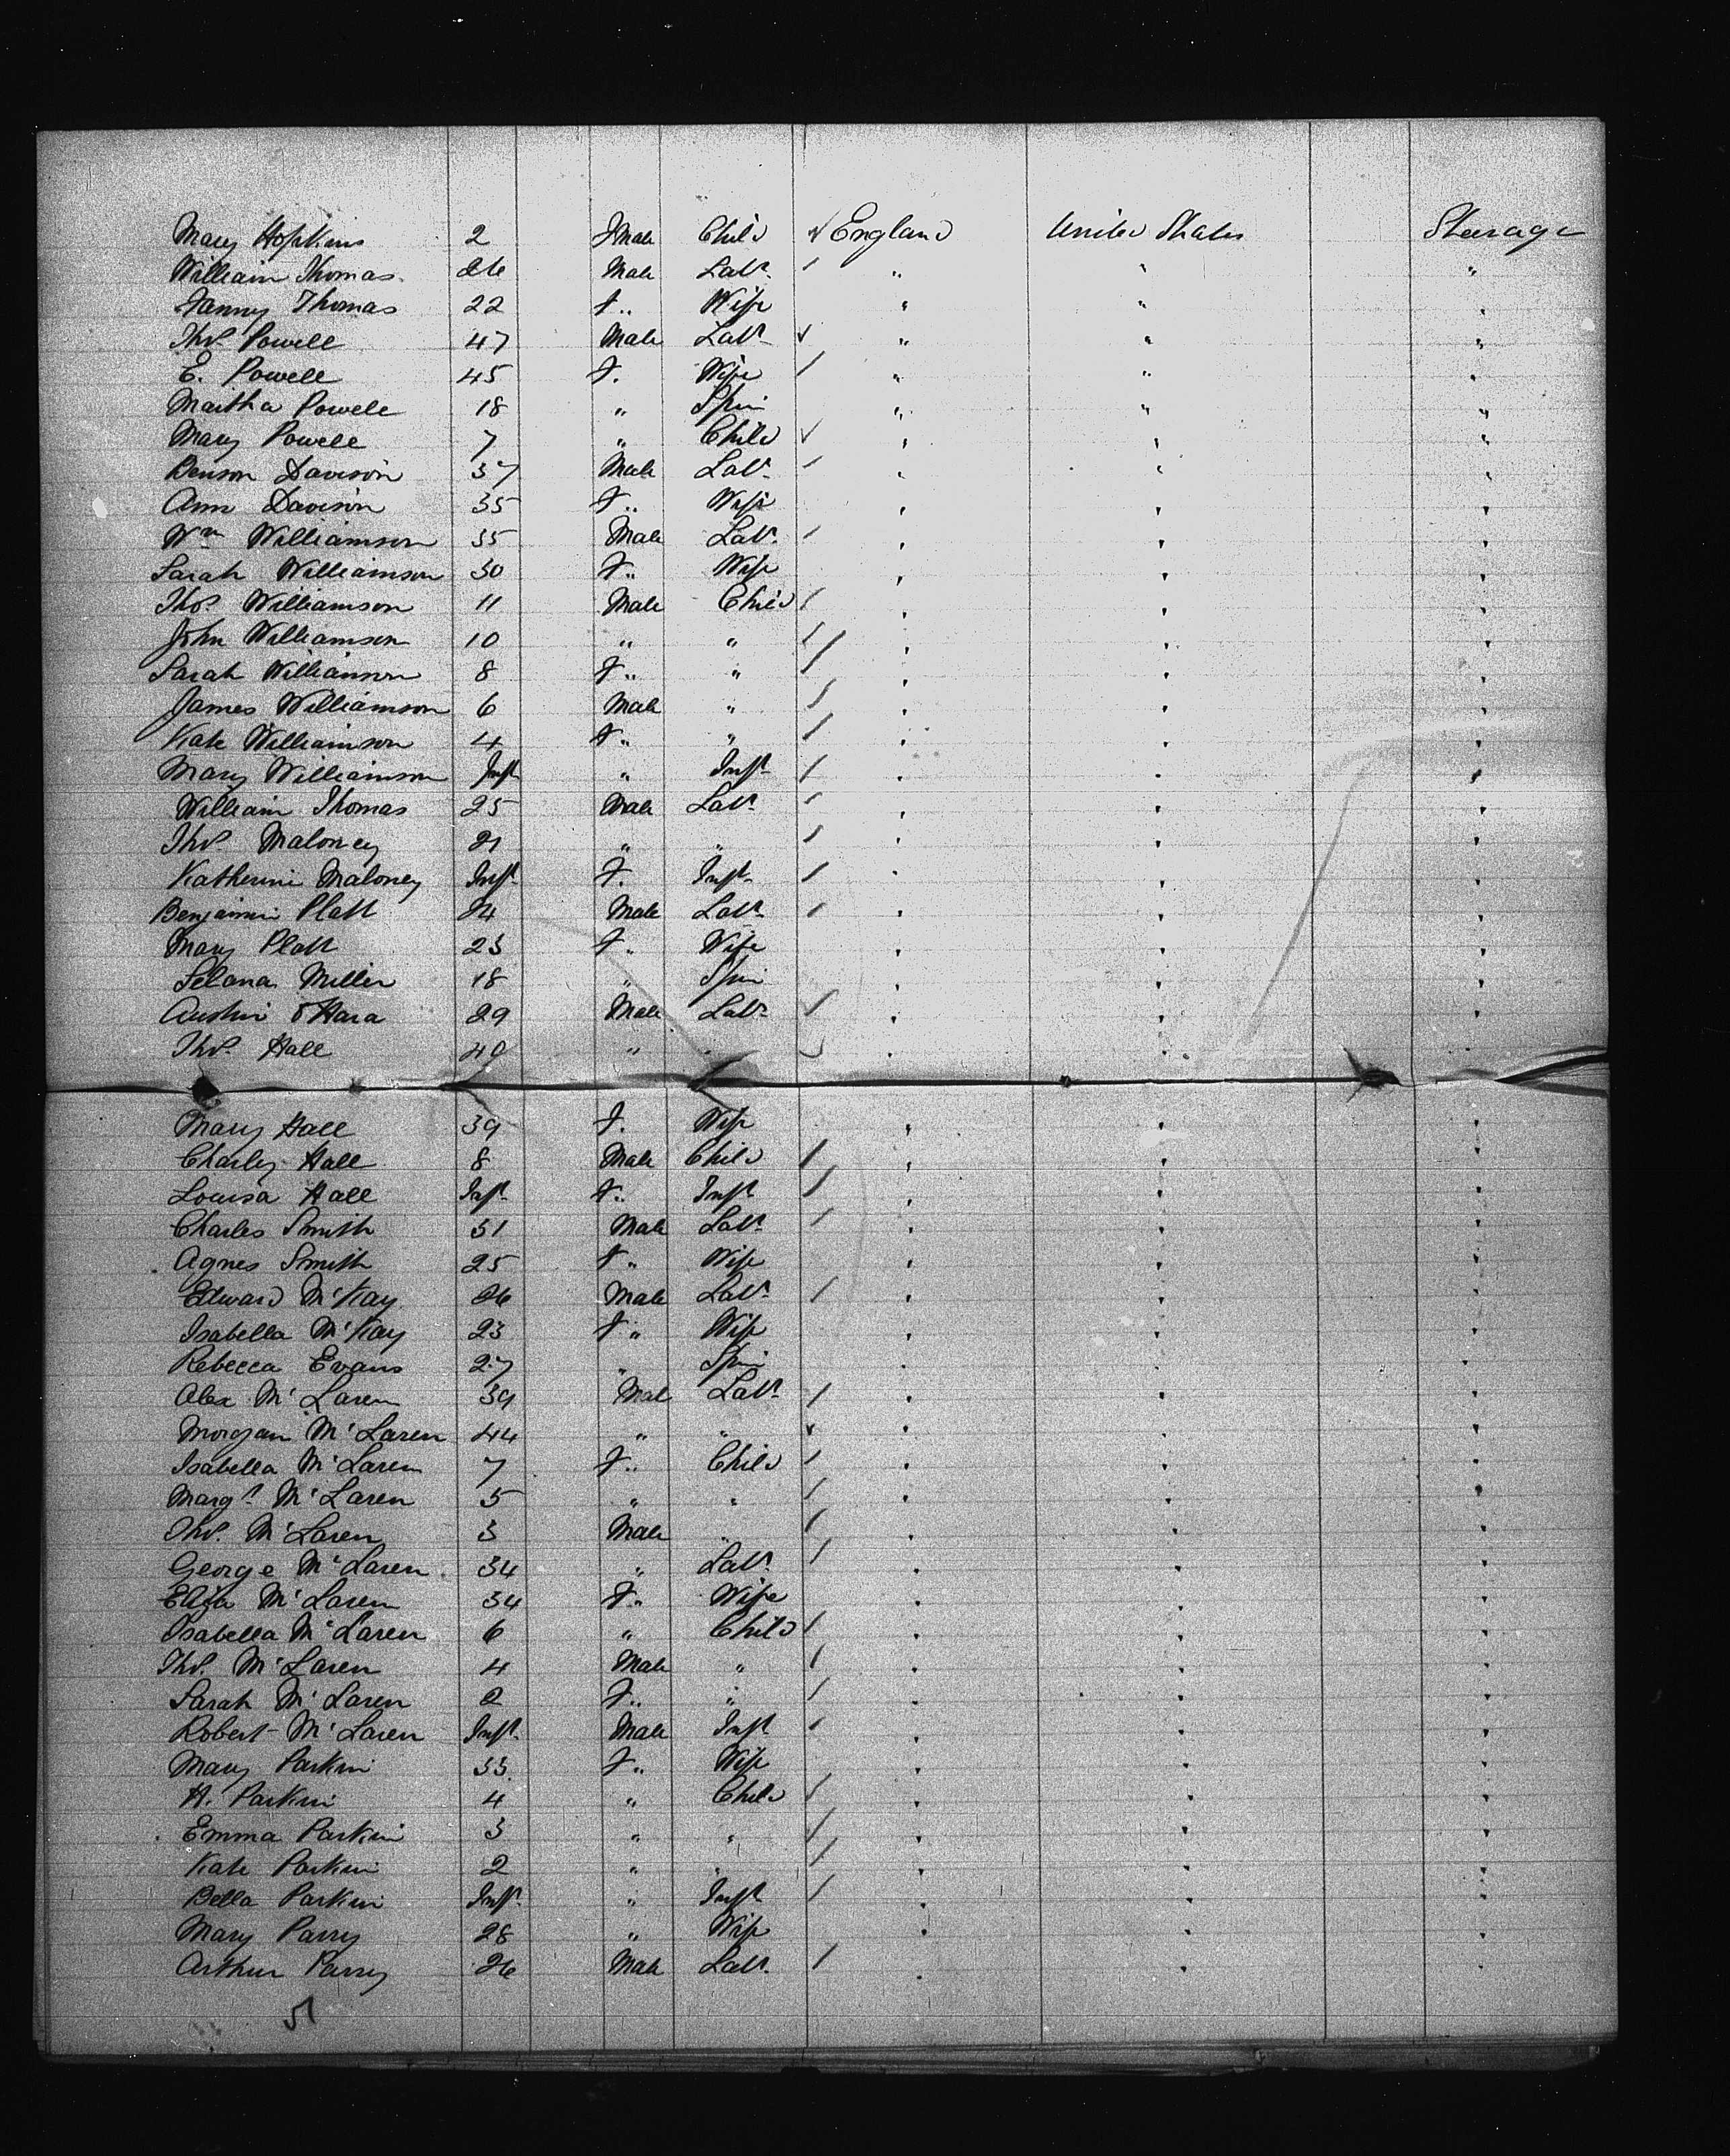 Mary Hopkins 2 Fmale Child England United States Steerage
William Thomas 26 Male Labr " " "
Fanny Thomas 22 F " Wife " " "
Thos Powell 47 Male Labr " " "
E. Powell 45 F. Wife " " "
Martha Powell 18 " Spin " " "
Mary Powell 7 " Child " " "
Benson Davison 37 Male Labr " " "
Ann Davison 35 F " Wife " " "
Wm Williamson 35 Male Labr " " "
Sarah Williamson 30 F " Wife " " "
Thos Williamson 11 Male Child " " "
John Williamson 10 " " " " "
Sarah Williamson 8 F " " " " "
James Williamson 6 Male " " " "
Kate Williamson 4 F " " " " "
Mary Williamson Inft " Inft " " "
William Thomas 25 Male Labr " " "
Thos Maloney 21 " " " " "
Katherine Maloney Inft F. Inft " " "
Benjamin Platt 24 Male Labr " " "
Mary Platt 23 F " Wife " " "
Selana Miller 18 " Spin " " "
Austin O'Hara 29 Male Labr " " "
Thos Hall 40 " " " " "
Mary Hall 39 F. Wife " " "
Charley Hall 8 Male Child " " "
Louisa Hall Inft F " Inft " " "
Charles Smith 31 Male Labr " " "
Agnes Smith 25 F " Wife " " "
Edward McKay 26 Male Labr " " "
Isabella McKay 23 F " Wife " " "
Rebecca Evans 27 " Spin " " "
Alex McLaren 39 Male Labr " " "
Morgan McLaren 44 " " " " "
Isabella McLaren 7 F " Child " " "
Margt McLaren 5 " " " " "
Thos McLaren 3 Male " " " "
George McLaren 34 " Labr " " "
Eliza McLaren 34 F " Wife " " "
Isabella McLaren 6 " Child " " "
Thos McLaren 4 Male " " " "
Sarah McLaren 2 F " " " " "
Robert McLaren Inft Male Inft " " "
Mary Parkin 33 F " Wife " " "
H. Parkin 4 " Child " " "
Emma Parkin 3 " " " " "
Kate Parkin 2 " " " " "
Bella Parkin Inft " Inft " " "
Mary Parry 28 " Wife " " "
Arthur Parry 26 Male Labr " " "
51